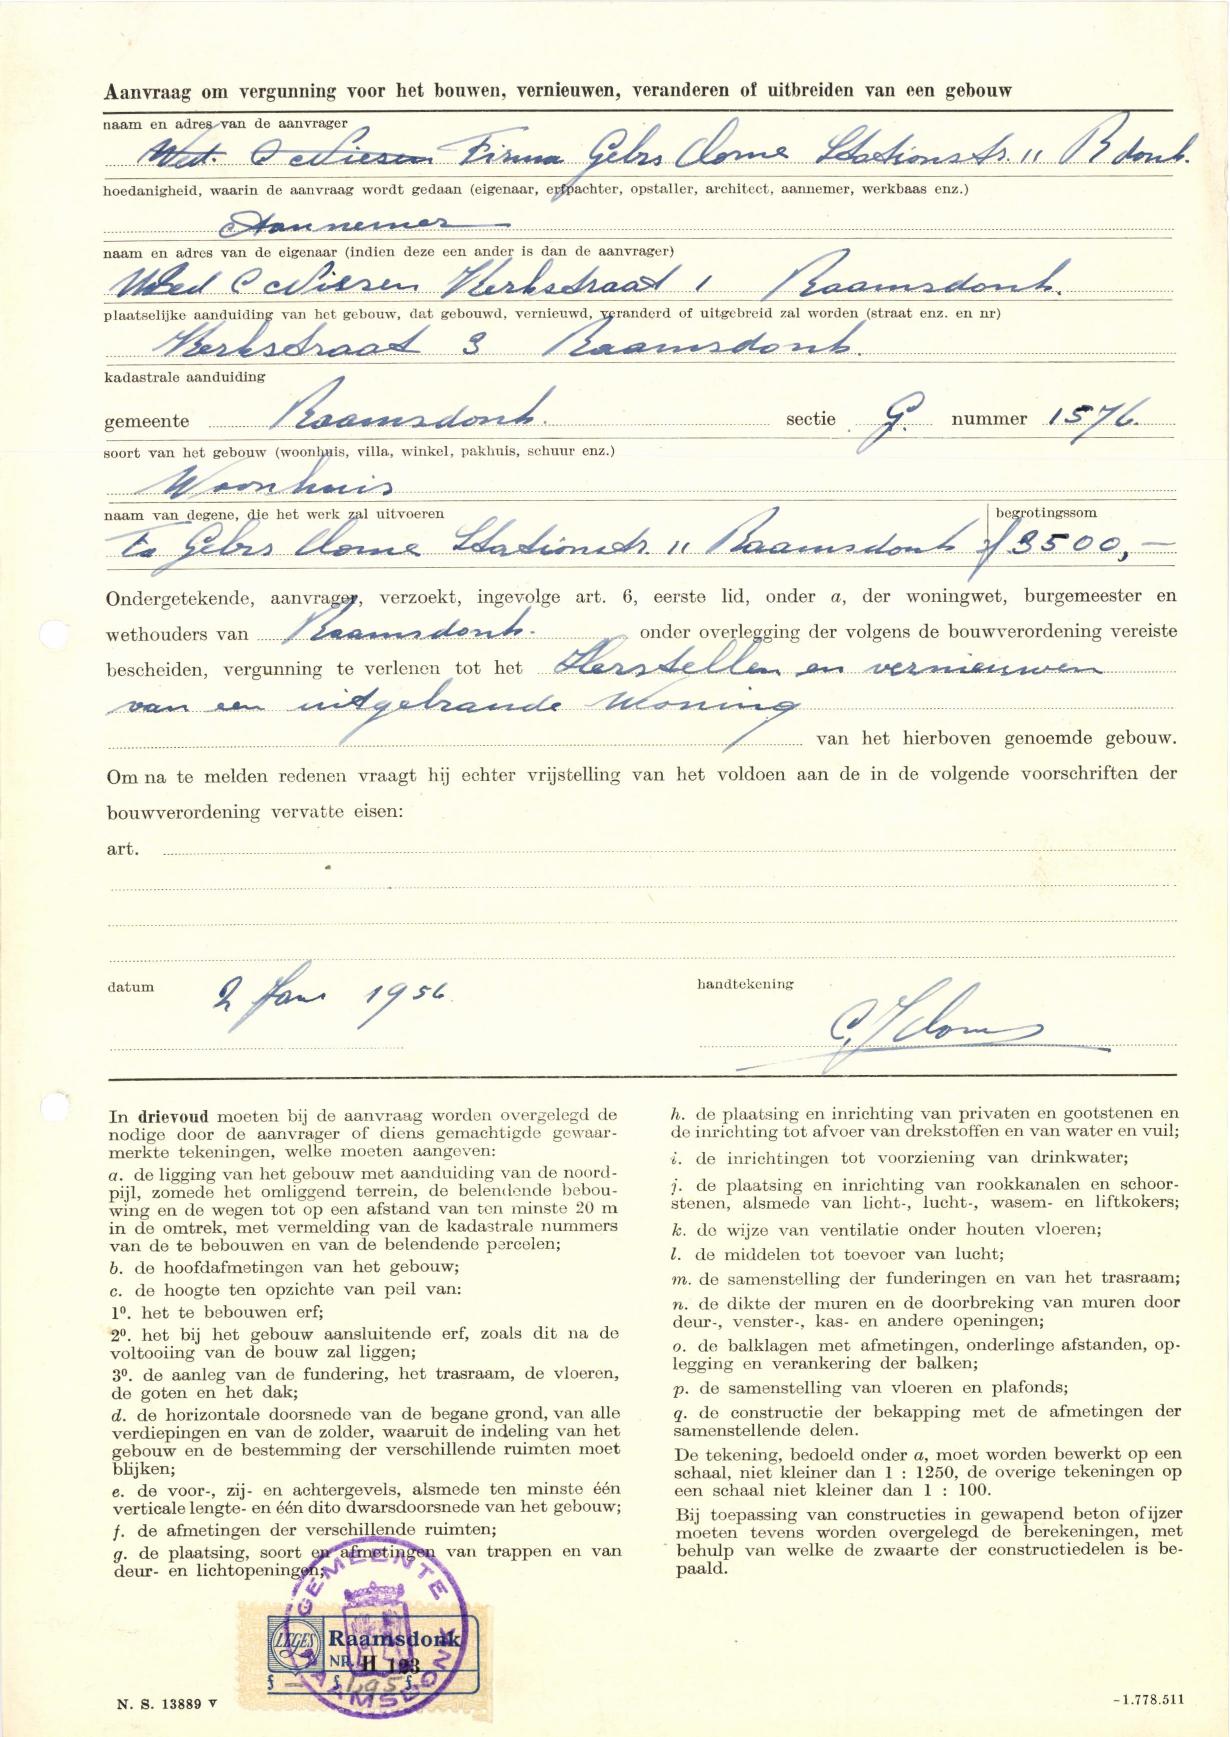 Aanvraag om vergunning voor het bouwen, vernieuwen, veranderen of uitbreiden van een gebouw
naam en adres van de aanvrager
Wed. C Niesen Firma Gebrs Corne Stationstr. 11 R donk.
hoedanigheid, waarin de aanvraag wordt gedaan (eigenaar, erfpachter, opstaller, architect, aannemer, werkbaas enz.)
Aannemer
naam en adres van de eigenaar (indien deze een ander is dan de aanvrager)
Wed C Niesen Kerkstraat 1 Raamsdonk.
plaatselijke aanduiding van het gebouw, dat gebouwd, vernieuwd, veranderd of uitgebreid zal worden (straat enz. en nr)
Kerkstraat 3 Raamsdonk.
kadastrale aanduiding
gemeente Raamsdonk. sectie G. nummer 1576.
soort van het gebouw (woonhuis, villa, winkel, pakhuis, schuur enz.)
Woonhuis
naam van degene, die het werk zal uitvoeren begrotingssom
Fa Gebrs Corne Stationstr. 11 Raamsdonk ƒ 3500,—
Ondergetekende, aanvrager, verzoekt, ingevolge art. 6, eerste lid, onder a, der woningwet, burgemeester en
wethouders van Raamsdonk. onder overlegging der volgens de bouwverordening vereiste
bescheiden, vergunning te verlenen tot het Herstellen en vernieuwen
van een uitgebrande Woning
van het hierboven genoemde gebouw.
Om na te melden redenen vraagt hij echter vrijstelling van het voldoen aan de in de volgende voorschriften der
bouwverordening vervatte eisen:
art.
datum 2 Jan 1956. handtekening
In drievoud moeten bij de aanvraag worden overgelegd de
nodige door de aanvrager of diens gemachtigde gewaar-
merkte tekeningen, welke moeten aangeven:
a. de ligging van het gebouw met aanduiding van de noord-
pijl, zomede het omliggend terrein, de belendende bebou-
wing en de wegen tot op een afstand van ten minste 20 m
in de omtrek, met vermelding van de kadastrale nummers
van de te bebouwen en van de belendende percelen;
b. de hoofdafmetingen van het gebouw;
c. de hoogte ten opzichte van peil van:
1º. het te bebouwen erf;
2º. het bij het gebouw aansluitende erf, zoals dit na de
voltooiing van de bouw zal liggen;
3º. de aanleg van de fundering, het trasraam, de vloeren,
de goten en het dak;
d. de horizontale doorsnede van de begane grond, van alle
verdiepingen en van de zolder, waaruit de indeling van het
gebouw en de bestemming der verschillende ruimten moet
blijken;
e. de voor-, zij- en achtergevels, alsmede ten minste één
verticale lengte- en één dito dwarsdoorsnede van het gebouw;
f. de afmetingen der verschillende ruimten;
g. de plaatsing, soort en afmetingen van trappen en van
deur- en lichtopeningen;
h. de plaatsing en inrichting van privaten en gootstenen en
de inrichting tot afvoer van drekstoffen en van water en vuil;
i. de inrichtingen tot voorziening van drinkwater;
j. de plaatsing en inrichting van rookkanalen en schoor-
stenen, alsmede van licht-, lucht-, wasem- en liftkokers;
k. de wijze van ventilatie onder houten vloeren;
l. de middelen tot toevoer van lucht;
m. de samenstelling der funderingen en van het trasraam;
n. de dikte der muren en de doorbreking van muren door
deur-, venster-, kas- en andere openingen;
o. de balklagen met afmetingen, onderlinge afstanden, op-
legging en verankering der balken;
p. de samenstelling van vloeren en plafonds;
q. de constructie der bekapping met de afmetingen der
samenstellende delen.
De tekening, bedoeld onder a, moet worden bewerkt op een
schaal, niet kleiner dan 1 : 1250, de overige tekeningen op
een schaal niet kleiner dan 1 : 100.
Bij toepassing van constructies in gewapend beton of ijzer
moeten tevens worden overgelegd de berekeningen, met
behulp van welke de zwaarte der constructiedelen is be-
paald.
GEMEENTE
RAAMSDONK
LEGES Raamsdonk
NR. H 123
N. S. 13889 V
-1.778.511